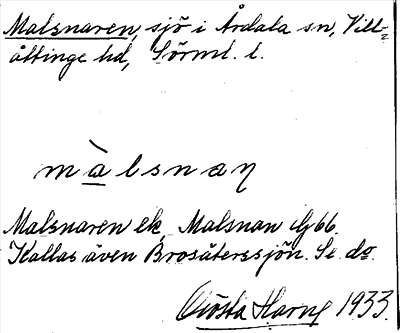 Malsnaren, sjö i Årdala sn, Vill-
åttinge hd, Sörml. l.
màlsnaη
Malsnaren ek, Malsnan Gj 66.
Kallas även Brosätterssjön. Se do.
Gösta Harng 1933.